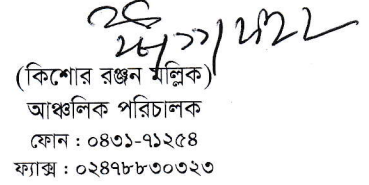 (কিশোর রঞ্জন মল্লিক)
আঞ্চলিক পরিচালক
ফোন : ০৪৩১-৭১২৫৪
ফ্যাক্স : ০২৪৭৮৮৩০৩২৩